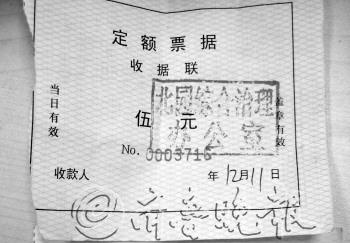 定额票据
收据联
当日有效
伍元
盖章有效
北园综合治理
办公室
No. 0003716
收款人
年12月11日
@齐鲁晚报